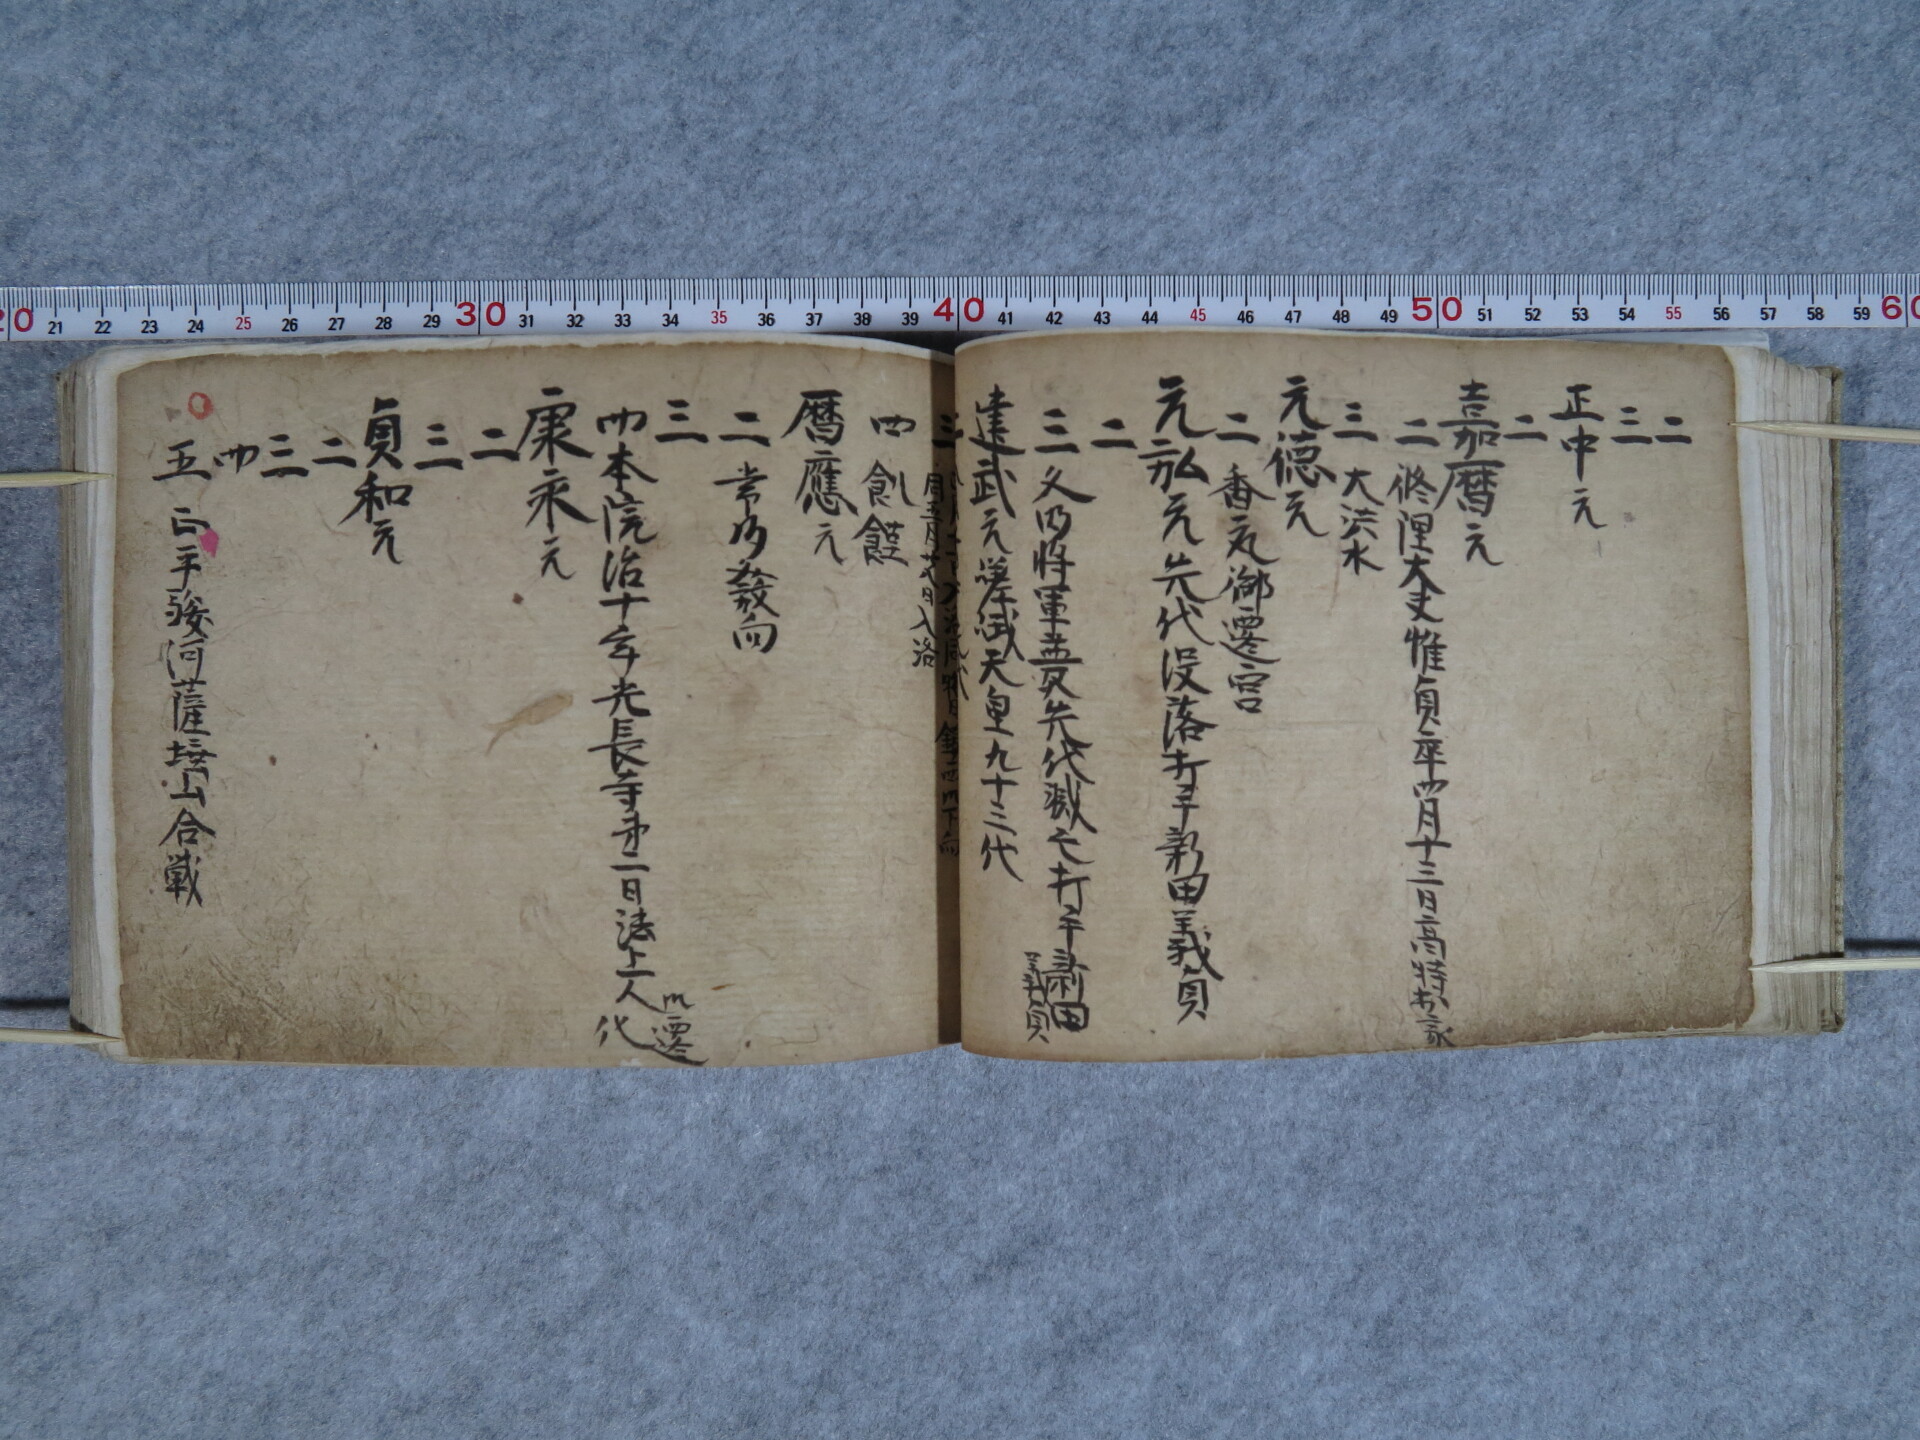 二
三
正中元
二
嘉暦元
二 修理大丈惟貞卒四月十三日高特出家
三 大洪水
元徳元
二 香庭御遷宮
元弘元 先代没落打手新田義貞
二
三 又乃將軍并先代滅亡打手新田義貞
建武元 後醍醐天皇九十三代
三
周五月廿 日入洛
四 飢饉
暦應元
二 常州發向
三
四 本院治十年光長寺第二日法上人御遷代
康永元
二
三
貞和元
二
三
四
五 正平駿河薩埵山合戦
20 21 22 23 24 25 26 27 28 29 30 31 32 33 34 35 36 37 38 39 40 41 42 43 44 45 46 47 48 49 50 51 52 53 54 55 56 57 58 59 60